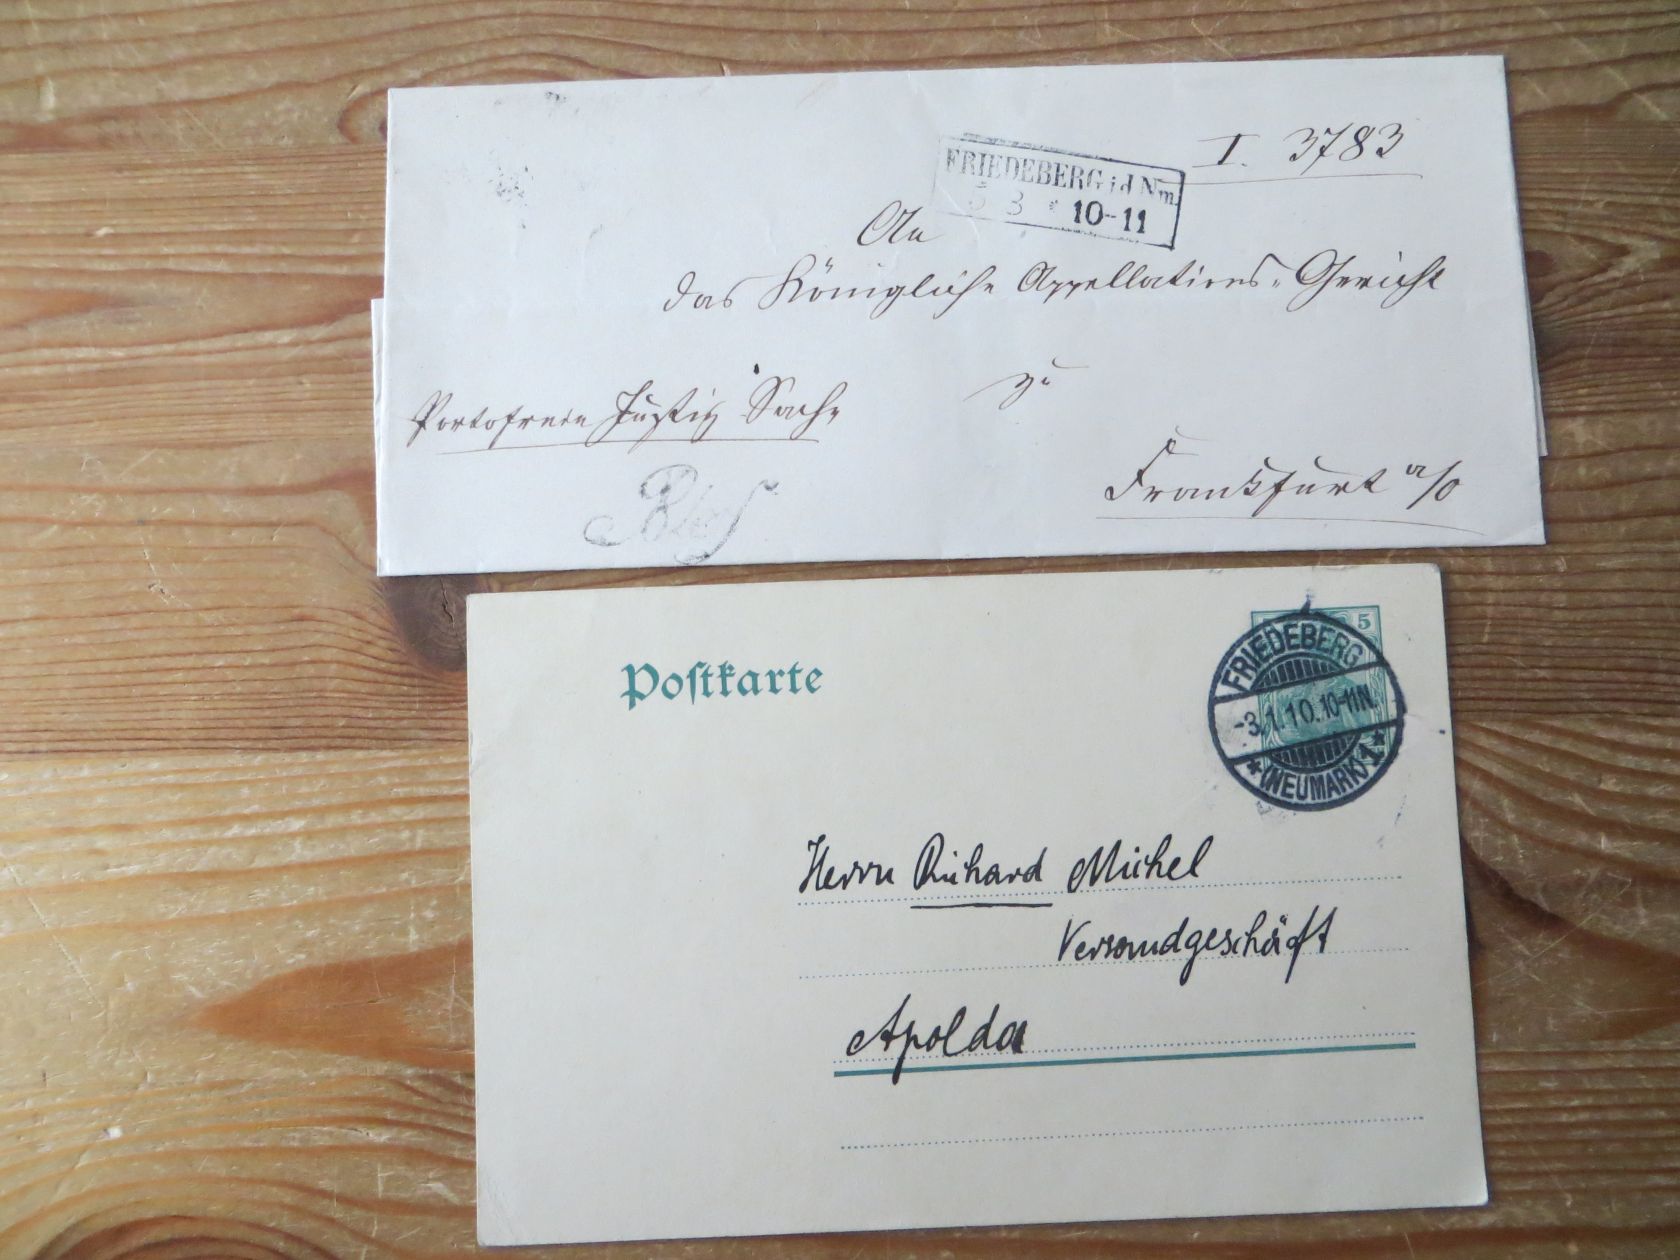 I. 3783
FRIEDEBERG i d Nm.
5 3 * 10-11
An
das Königliche Appellations-Gericht
zu
Portofreie Justiz Sache
Frankfurt a/O
Postkarte
5
FRIEDEBERG
-3.1.10.10-11N.
* (NEUMARK) 1 *
Herrn Richard Michel
Versandgeschäft
Apolda